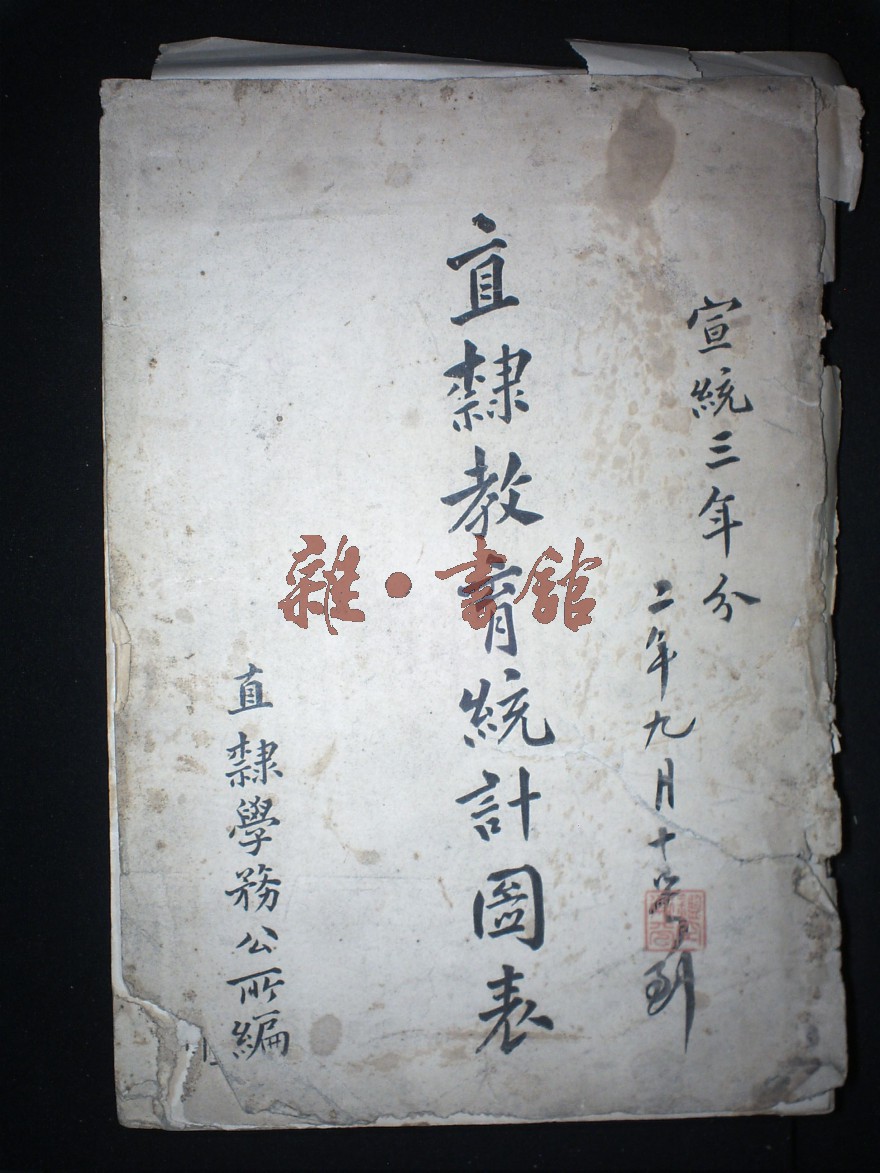 宣統三年分
二年九月十號到
直隸教育統計圖表
直隸學務公所編
雜·書館